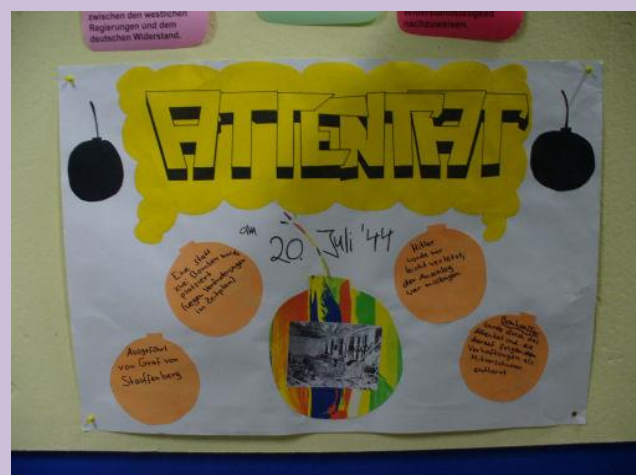 zwischen den westlichen
Regierungen und dem
deutschen Widerstand.
nachzuweisen.
ATTENTAT
am
20. Juli '44
Eine statt
zwei Bomben wurde
platziert
(wegen Veränderungen
im Zeitplan)
Hitler
wurde nur
leicht verletzt;
der Anschlag
war misslungen
Ausgeführt
von Graf von
Stauffenberg
wurde durch das
Attentat und die
darauf folgenden
Verhaftungen als
enttarnt